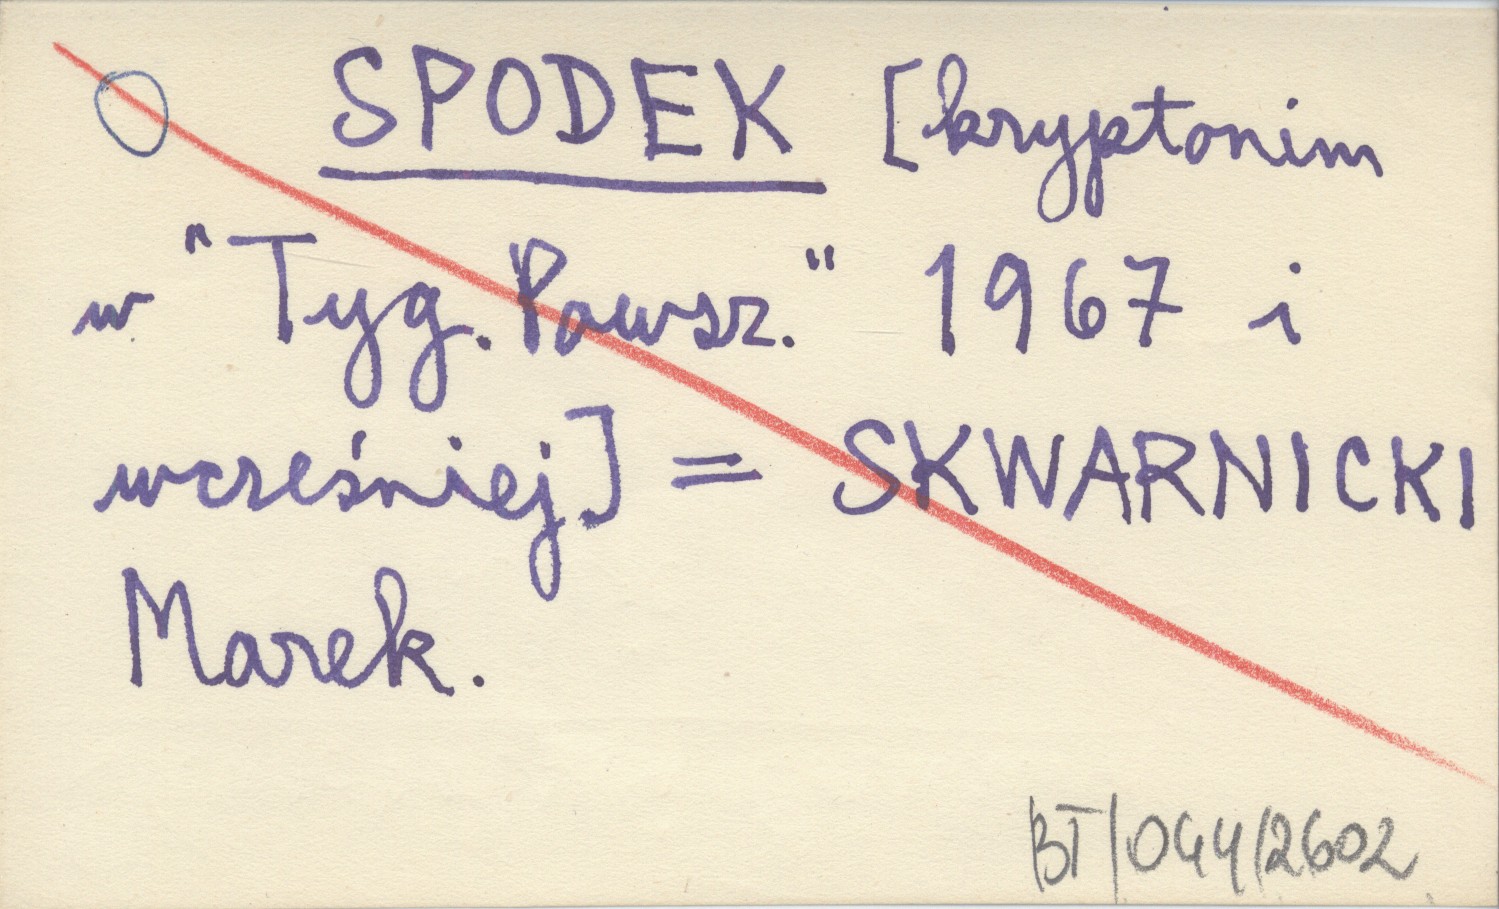 SPODEK [kryptonim
w "Tyg. Powsz." 1967 i
wcześniej] = SKWARNICKI
Marek.
BT/044/2602